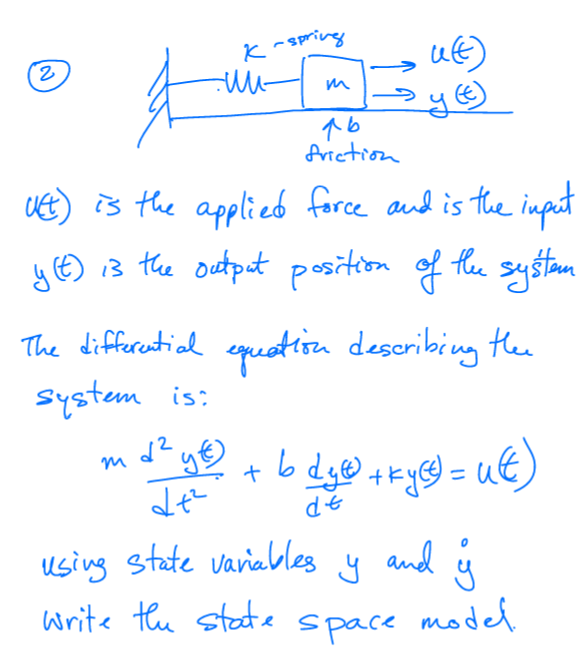 K - spring
u(t)
②
m
y(t)
b
friction
u(t) is the applied force and is the input
y(t) is the output position of the system
The differential equation describing the
system is:
m d² y(t)/dt² + b dy(t)/dt + Ky(t) = u(t)
using state variables y and ẏ
write the state space model.